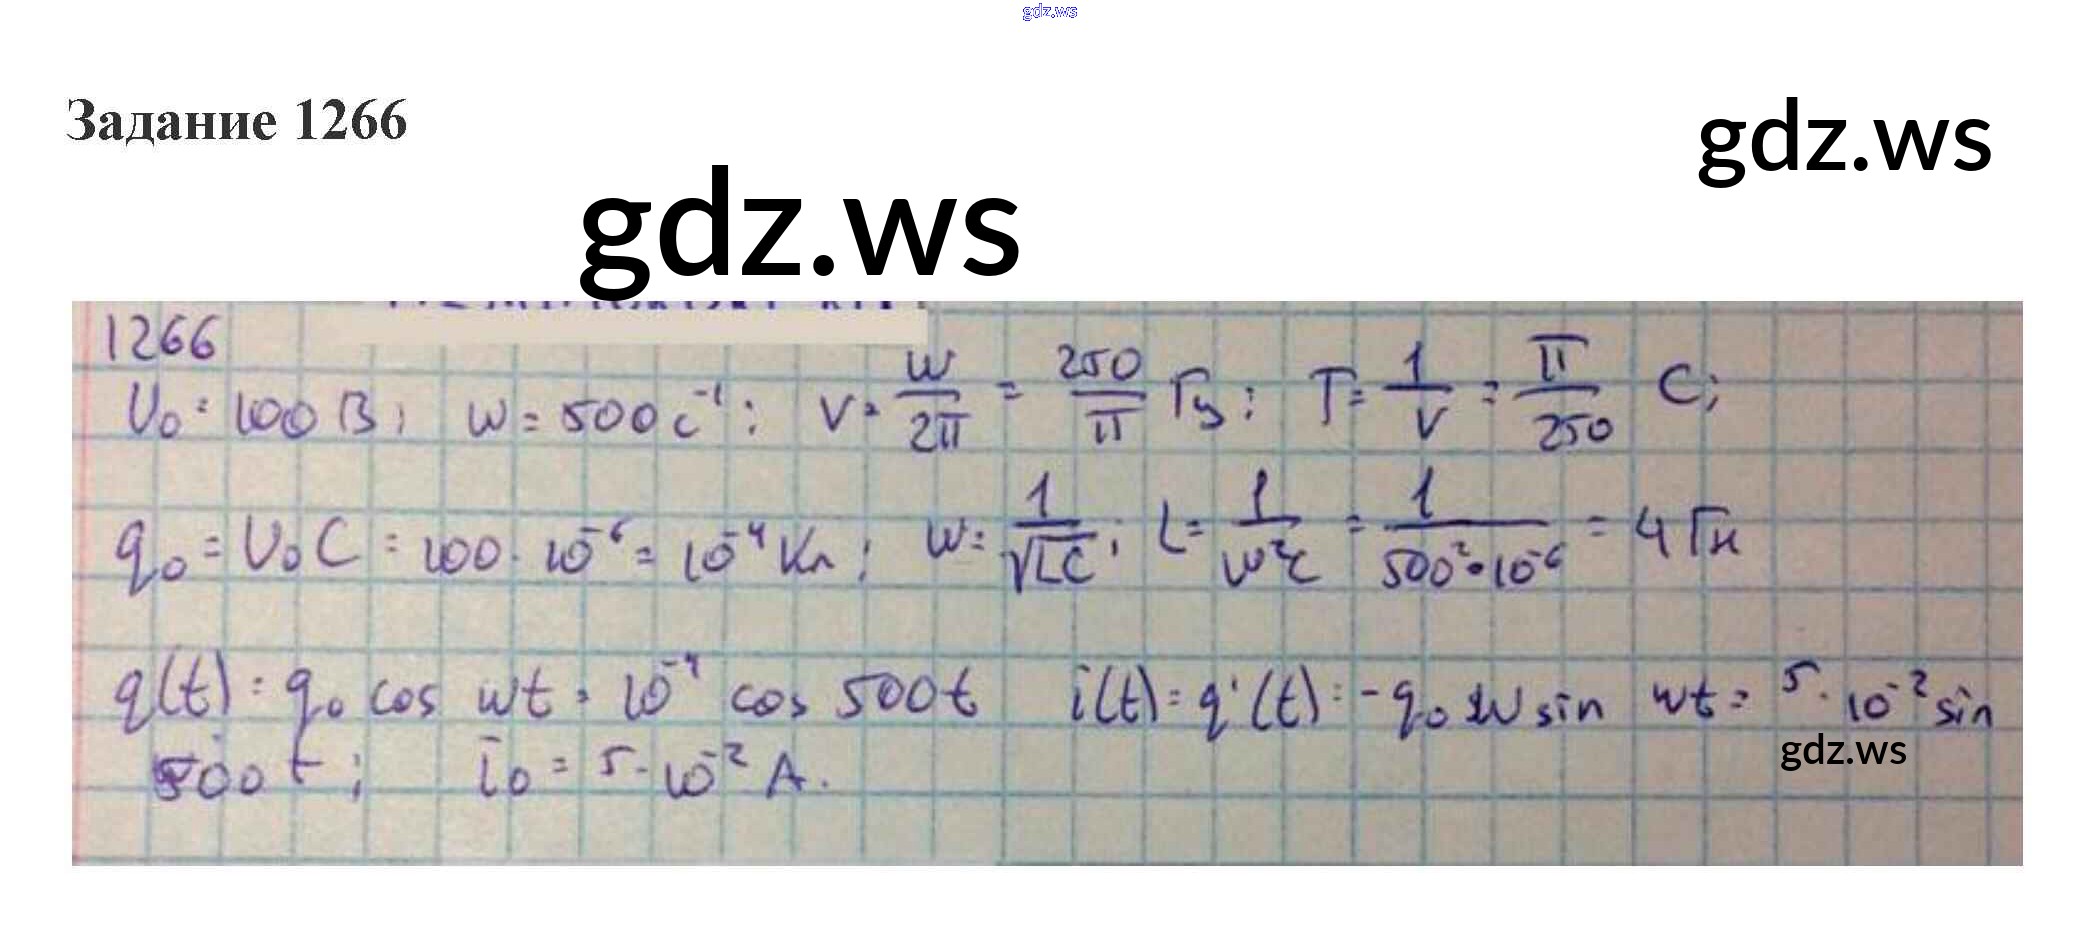 gdz.ws
Задание 1266
gdz.ws
gdz.ws
1266
U₀ = 100 В; w = 500 c⁻¹; ν = w/2π = 250/π Гц; T = 1/ν = π/250 С;
q₀ = U₀C = 100 · 10⁻⁶ = 10⁻⁴ Кл; w = 1/√LC; L = 1/w²c = 1/500²·10⁻⁶ = 4 Гн
q(t) = q₀ cos wt = 10⁻⁴ cos 500t i(t) = q'(t) = -q₀ w sin wt = 5 · 10⁻² sin
500 t; i₀ = 5 · 10⁻² A.
gdz.ws